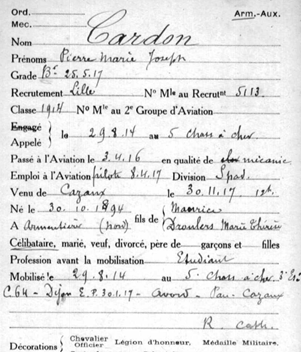 Ord. Arm.-Aux.
Mec.
Nom Cardon
Prénoms Pierre Marie Joseph
Grade Br 25.5.17
Recrutement Lille No Mle au Recrutnt 5113
Classe 1914 No Mle au 2e Groupe d'Aviation
Engagé
Appelé le 29.8.14 au 5 chass à chev.
Passé à l'Aviation le 3.4.16 en qualité de mécanic
Emploi à l'Aviation pilote 8.4.17 Division Spad.
Venu de Cazaux le 30.11.17
Né le 30.10.1894 fils de Maurice
A Armentière (Nord) Marie
Célibataire, marié, veuf, divorcé, père de garçons et filles
Profession avant la mobilisation Etudiant
Mobilisé le 29.8.14 au 5e chass à chev.
C.64 - Dijon E.P. 30.1.17 - Avord - Pau - Cazaux
R. cath.
Décorations { Chevalier Légion d'honneur. Médaille Militaire.
Officier